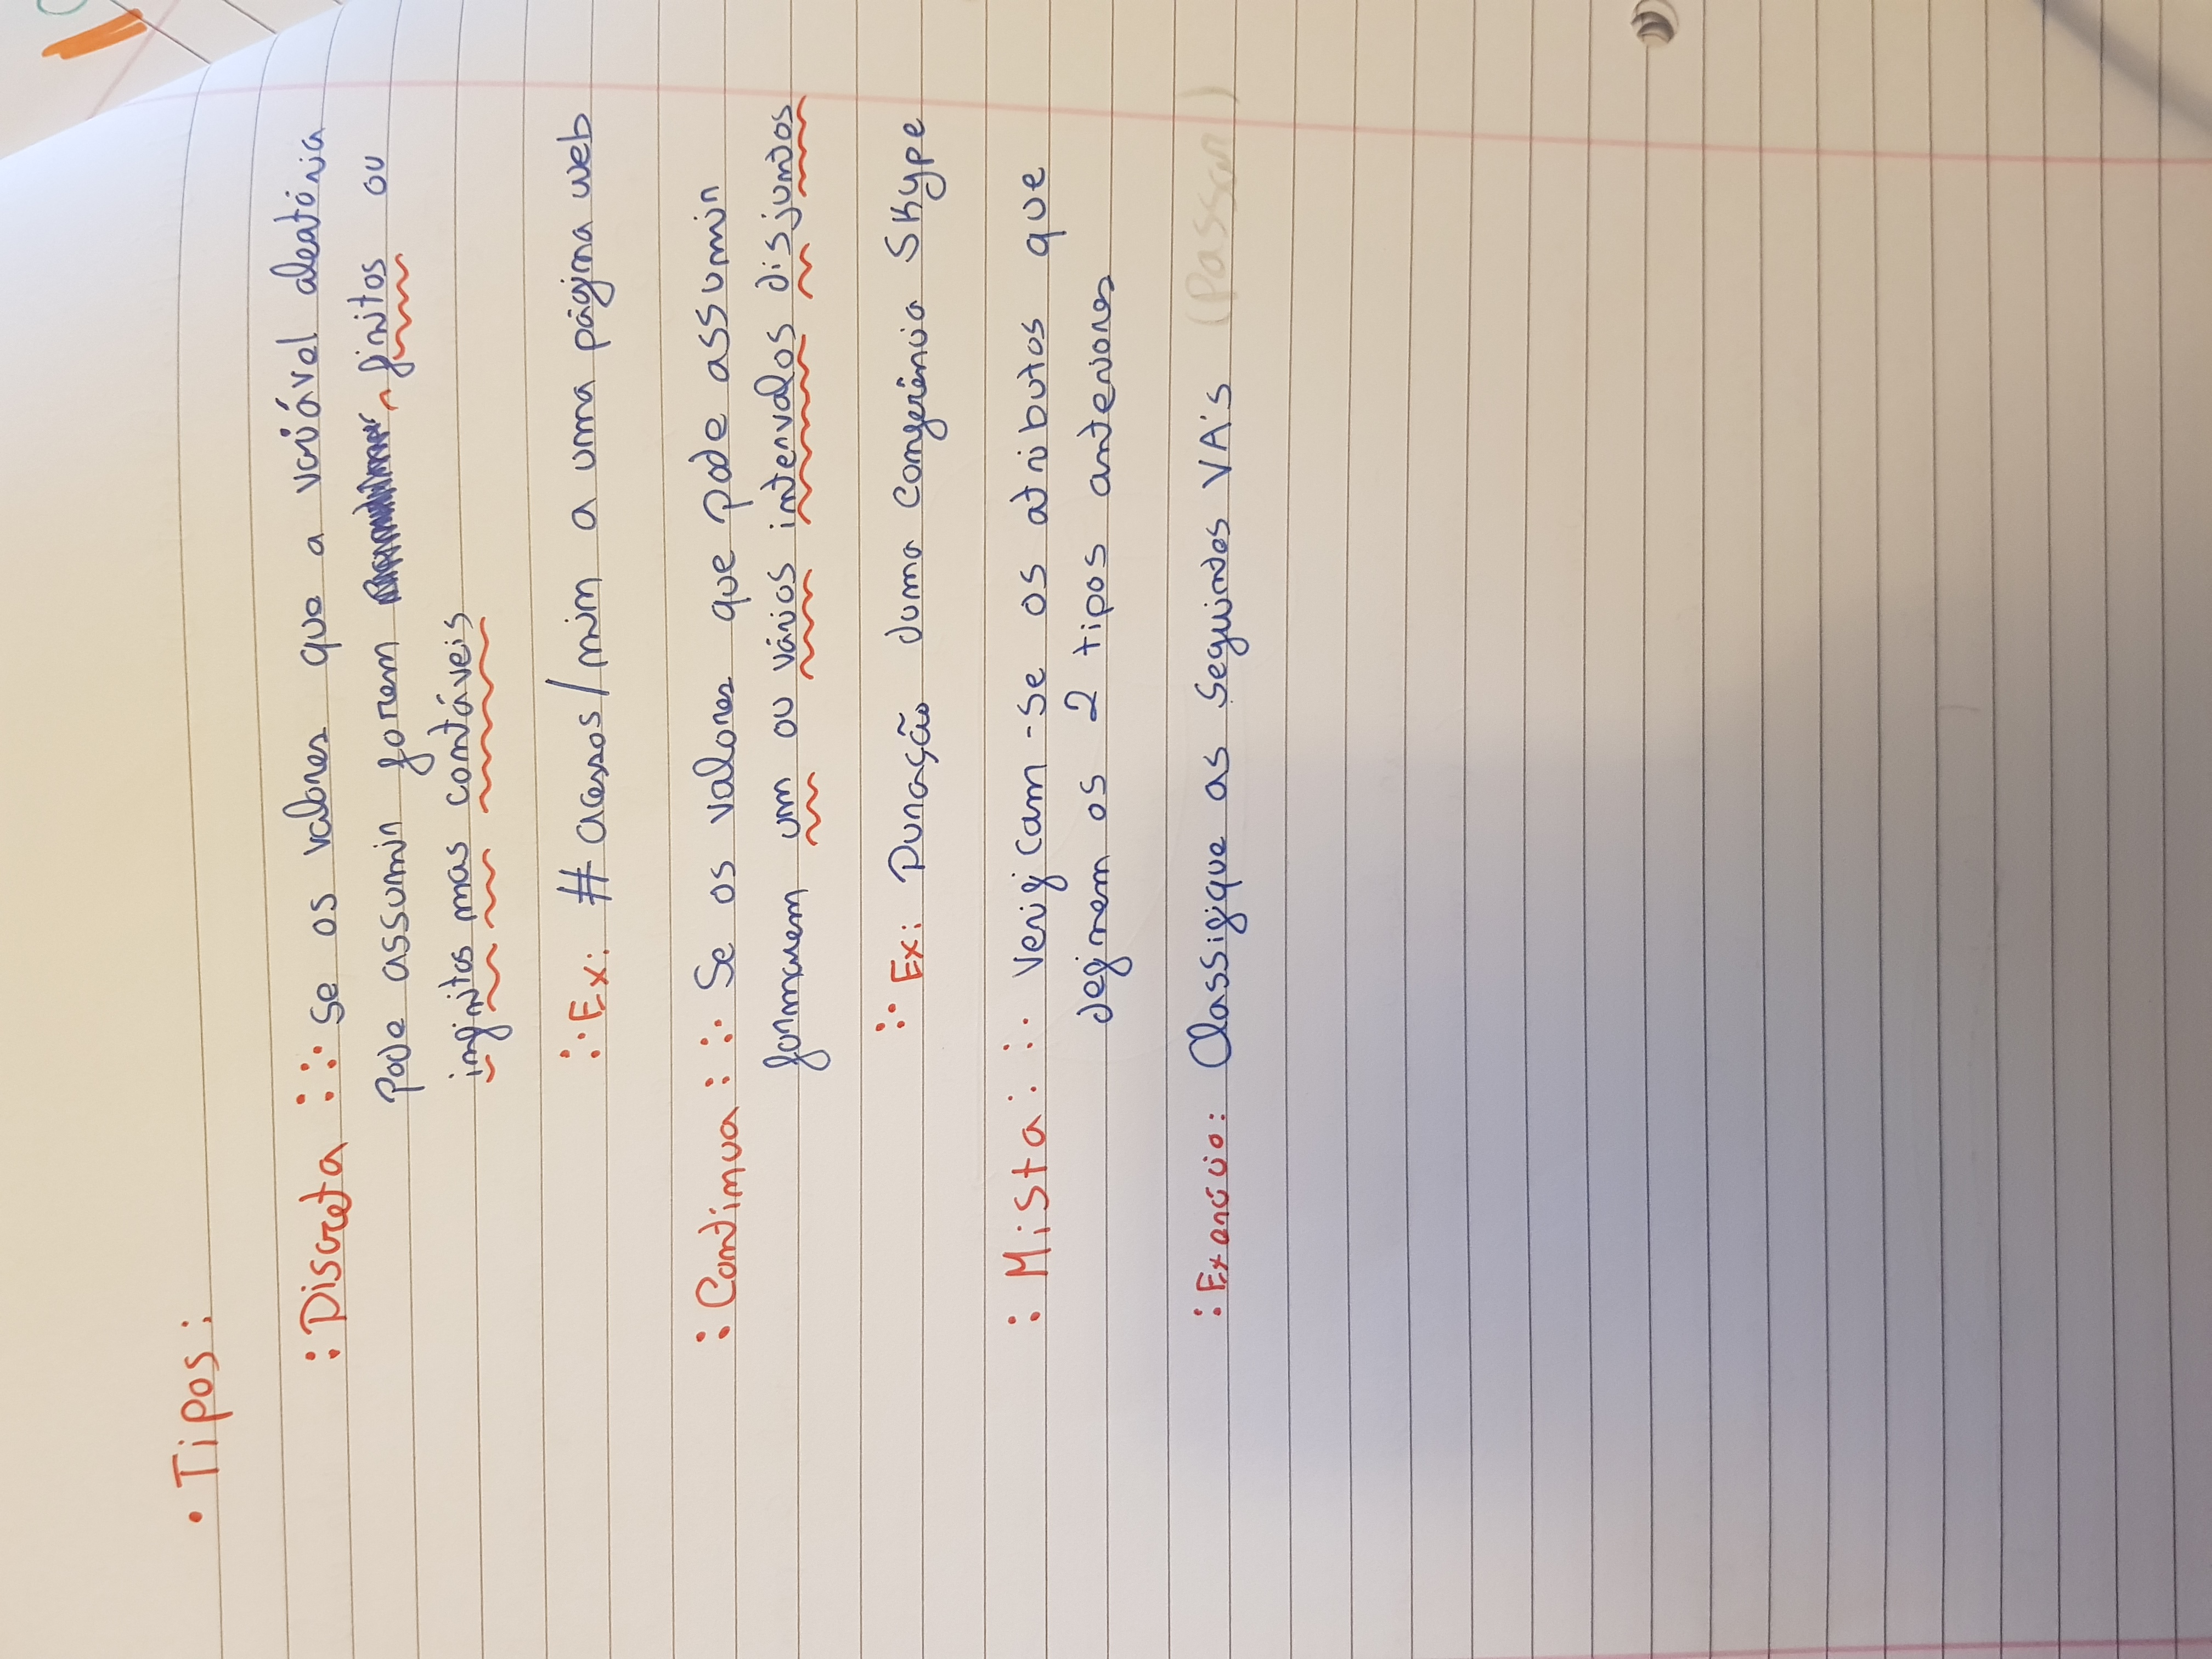 • Tipos:
: Discreta : ∴ Se os valores que a variável aleatória
pode assumir forem finitos ou
infinitos mas contáveis
∴ Ex: # acessos/min a uma página web
: Continua : ∴ Se os valores que pode assumir
formarem um ou vários intervalos disjuntos
∴ Ex: Duração duma conferência Skype
: Mista : ∴ Verificam-se os atributos que
definem os 2 tipos anteriores
: Exercício: Classifique as seguintes VA's (Passar)